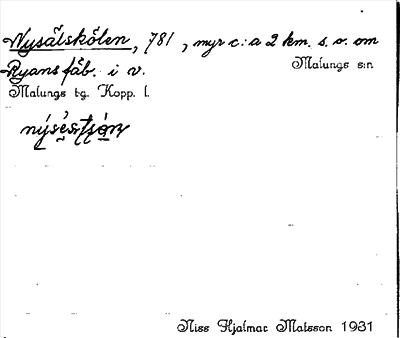 Nysätskölen, 781, myr c:a 2 km. s.v. om
Ryans fäb. i v. Malungs s:n
Malungs tg. Kopp. l.
Niss Hjalmar Matsson 1931